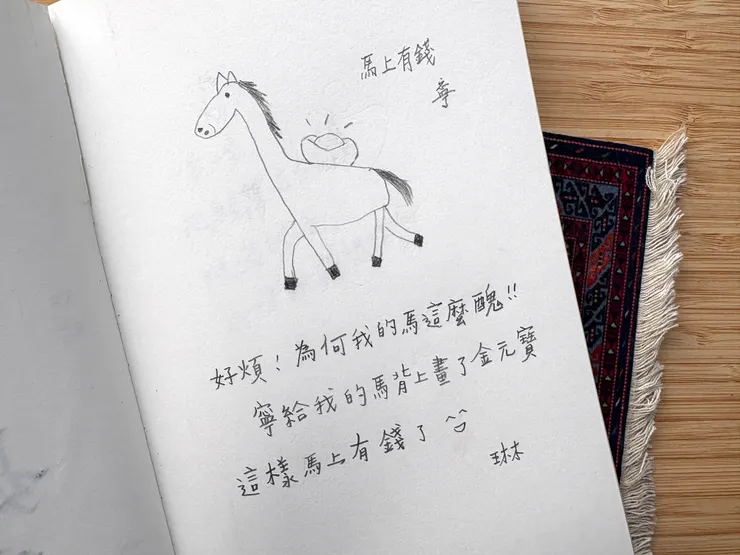 馬上有錢
寧
好煩！為何我的馬這麼醜!!
寧給我的馬背上畫了金元寶
這樣馬上有錢了 ^^
琳